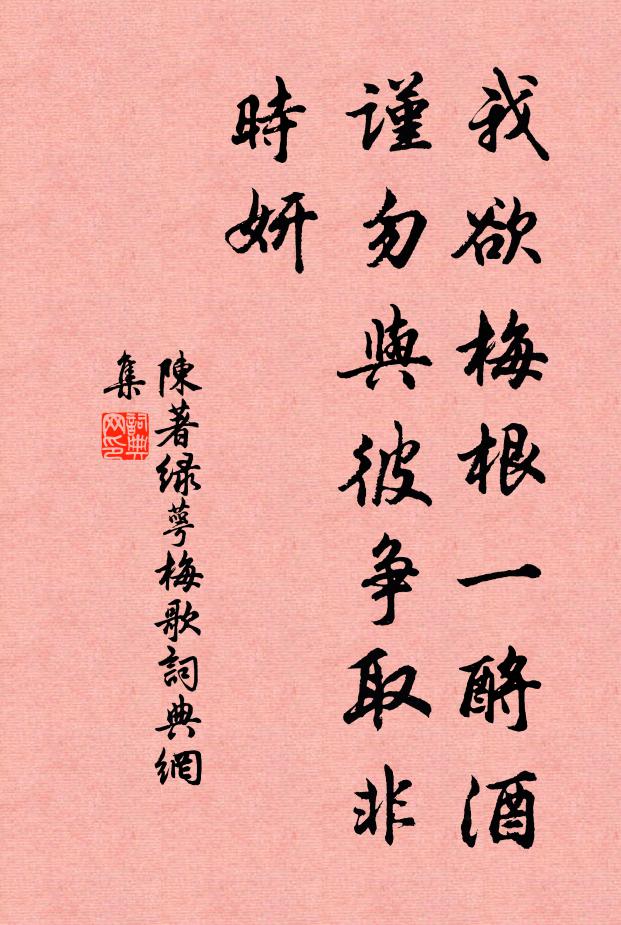 我欲梅根一酹酒
謹勿與彼争取非
時妍
陳著绿萼梅歌詞典網
集
詞典
网印